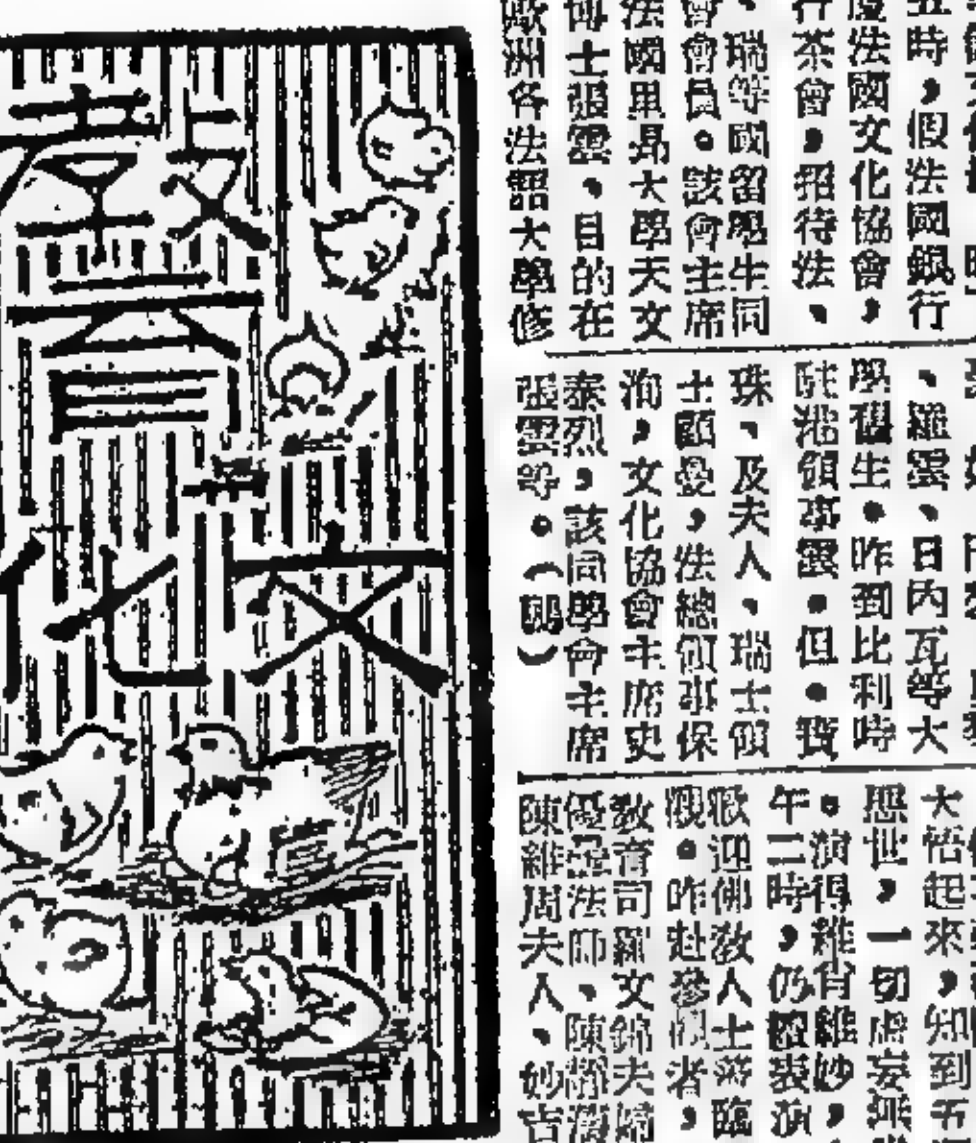 五時，假法國銀行
廈法國文化協會，
行茶會，招待法、
、瑞等國留學生同
會會員。該會主席
法國里昂大學天文
博士張雲、目的在
歐洲各法語大學修
、雲、日內瓦等大
學生。昨到比利時
領事雲。但。寶
珠、及夫人、瑞士領
士顧曼，法總領事保
洵，文化協會主席史
泰烈，該同學會主席
張雲等。
大悟起來，知到
惡世，一切虛妄無
。演得維肖維妙，
午二時，仍表演
歡迎佛教人士蒞臨
觀。昨赴參觀者，
教育司羅文錦夫婦
優曇法師、陳靜濤
陳維周夫人、妙吉
文化
教育